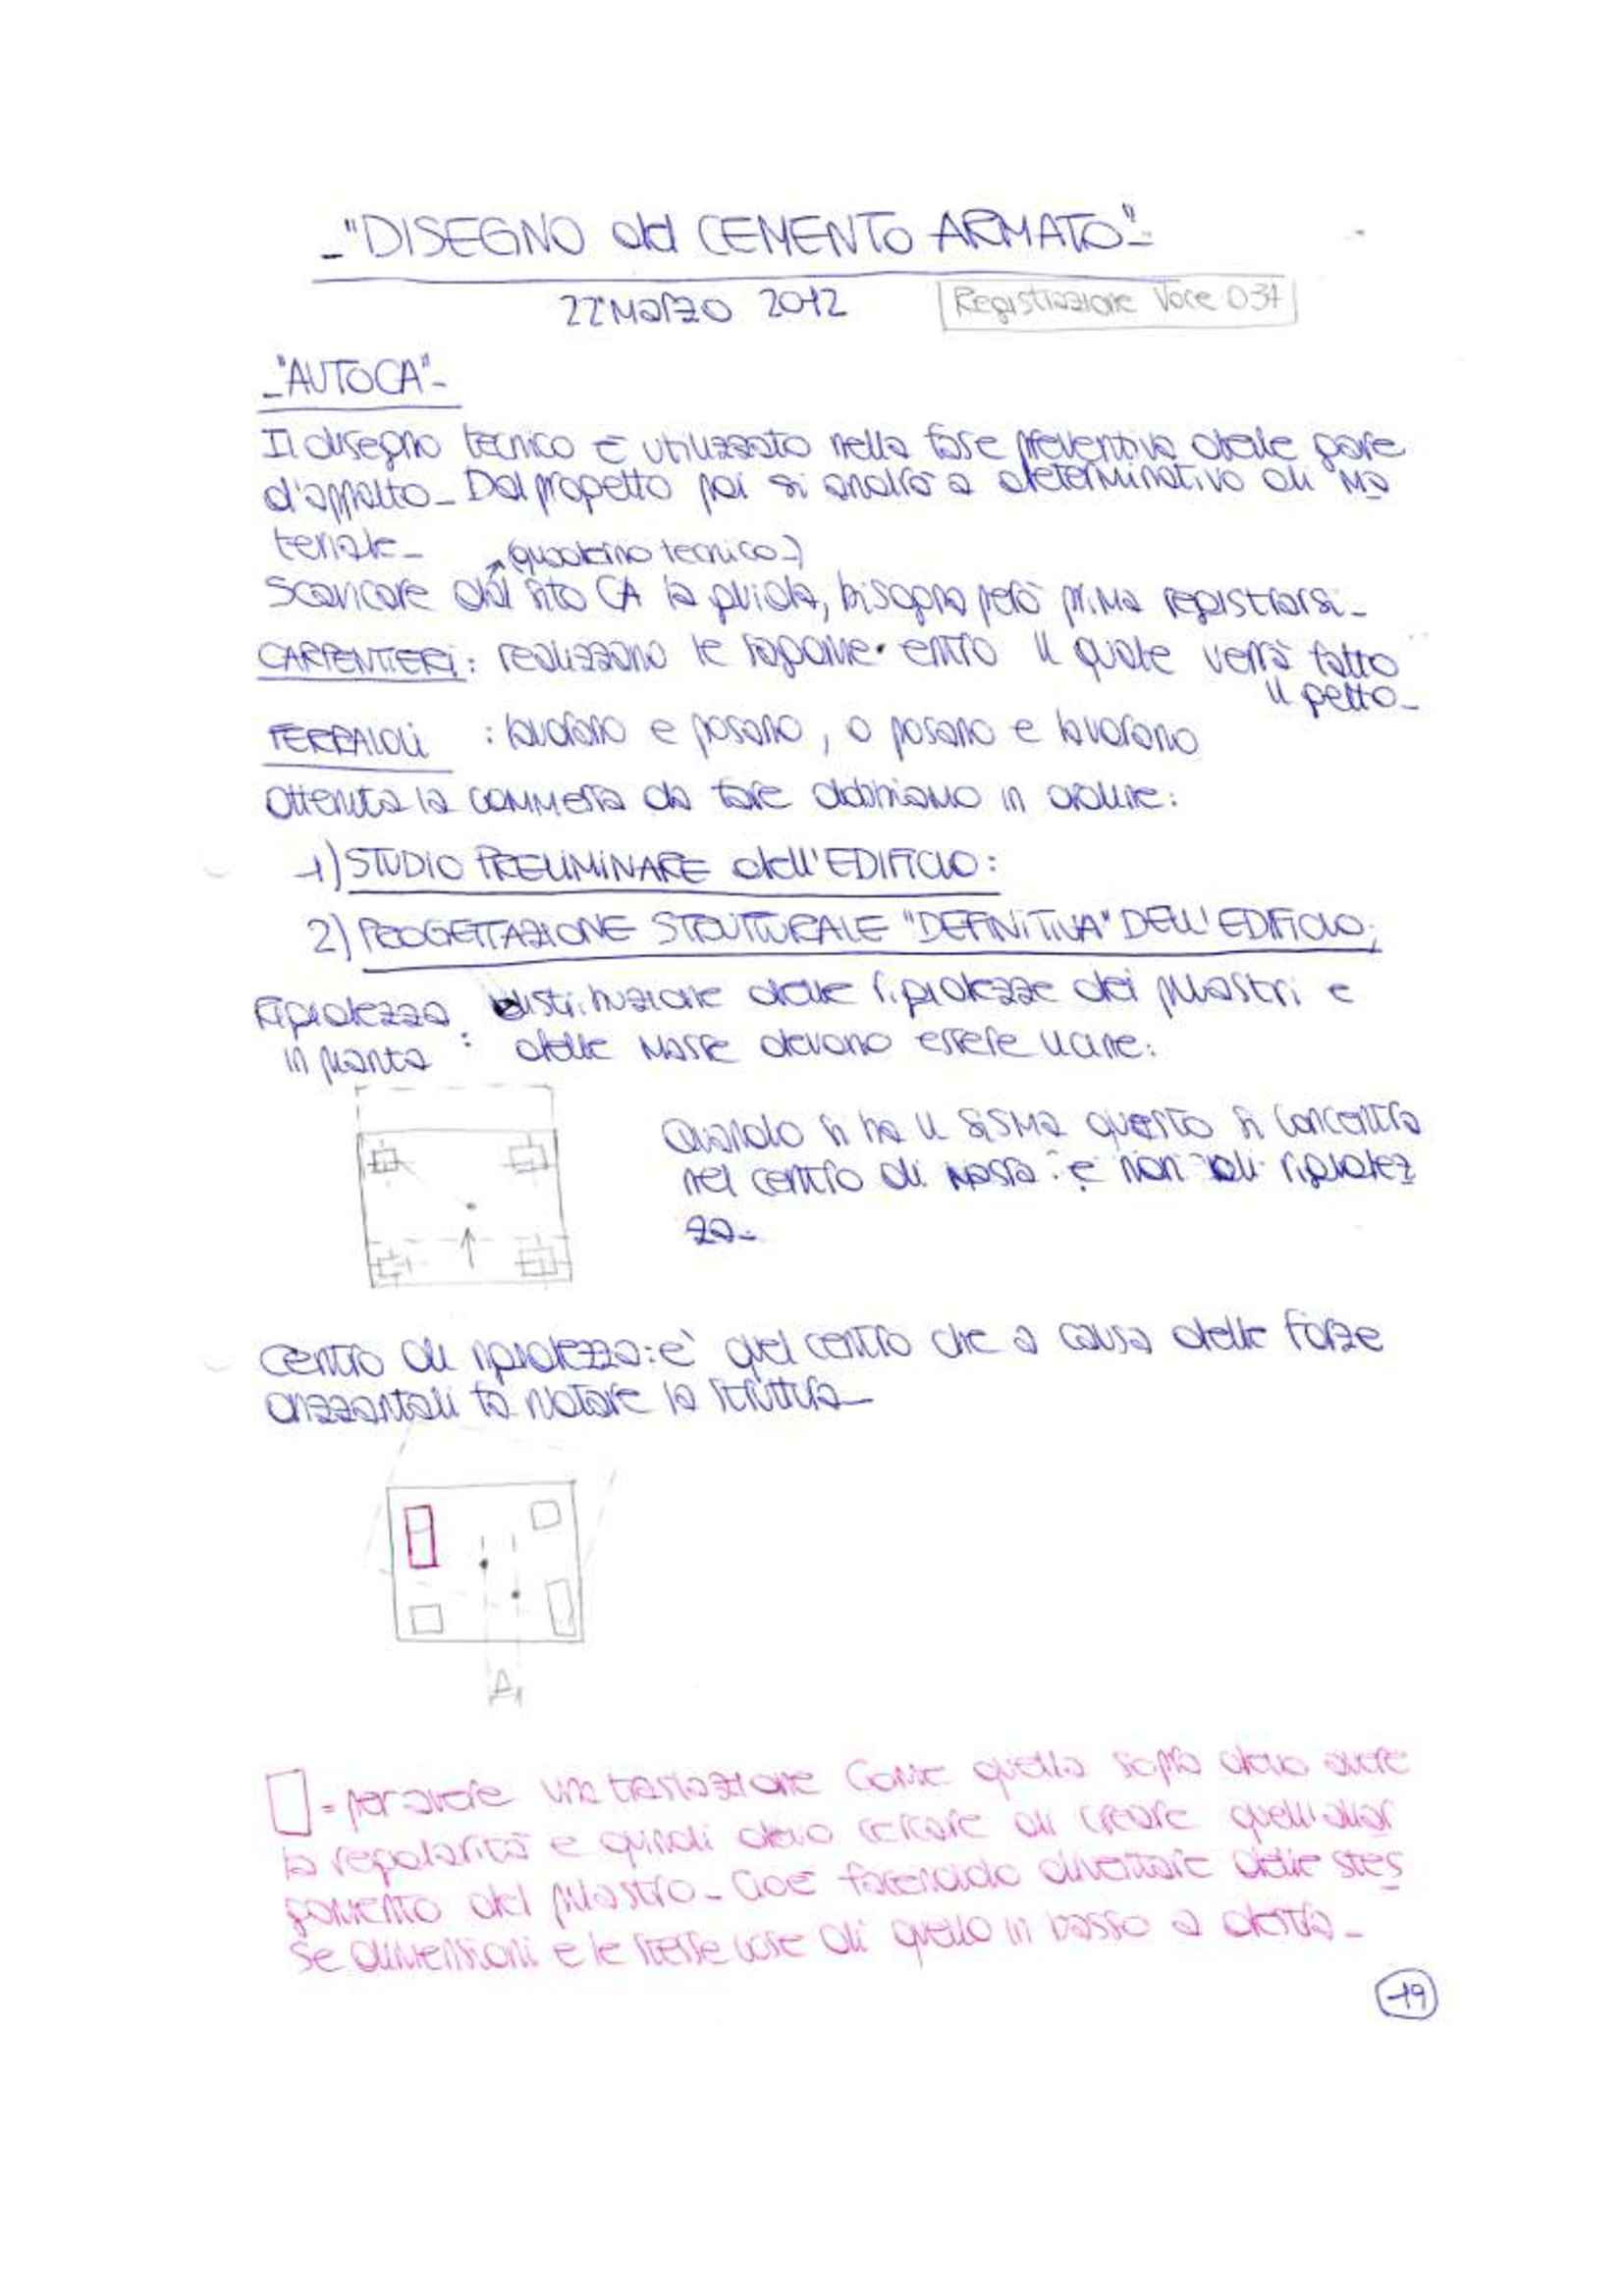 -"DISEGNO del CEMENTO ARMATO"-
22 Marzo 2012
Registrazione Voce 037
-"AUTOCA"-
Il disegno tecnico è utilizzato nella fase preventiva delle gare
d'appalto- Dal progetto poi si andrà a determinativo di ma
teriale-
(quaderno tecnico-)
Scaricare dal sito CA la guida, bisogna però prima registrarsi-
CARPENTIERI: realizzano le sagome entro il quale verrà fatto
il getto-
FERRAIOLI : lavorano e posano, o posano e lavorano
Ottenuta la commessa da fare abbiamo in ordine:
1) STUDIO PRELIMINARE dell'EDIFICIO:
2) PROGETTAZIONE STRUTTURALE "DEFINITIVA" DELL'EDIFICIO;
Rigidezza : distribuzione delle rigidezze dei pilastri e
in pianta delle masse devono essere vicine:
Quando si ha il sisma questo si concentra
nel centro di massa e non di rigidez
za-
Centro di rigidezza: è quel centro che a causa delle forze
orizzontali fa ruotare la struttura-
= per avere una traslazione come quella sopra devo avere
la regolarità e quindi devo cercare di creare quell'allar
gamento del pilastro- Cioè facendolo diventare delle stes
se dimensioni e le stesse cose di quello in basso a destra-
19